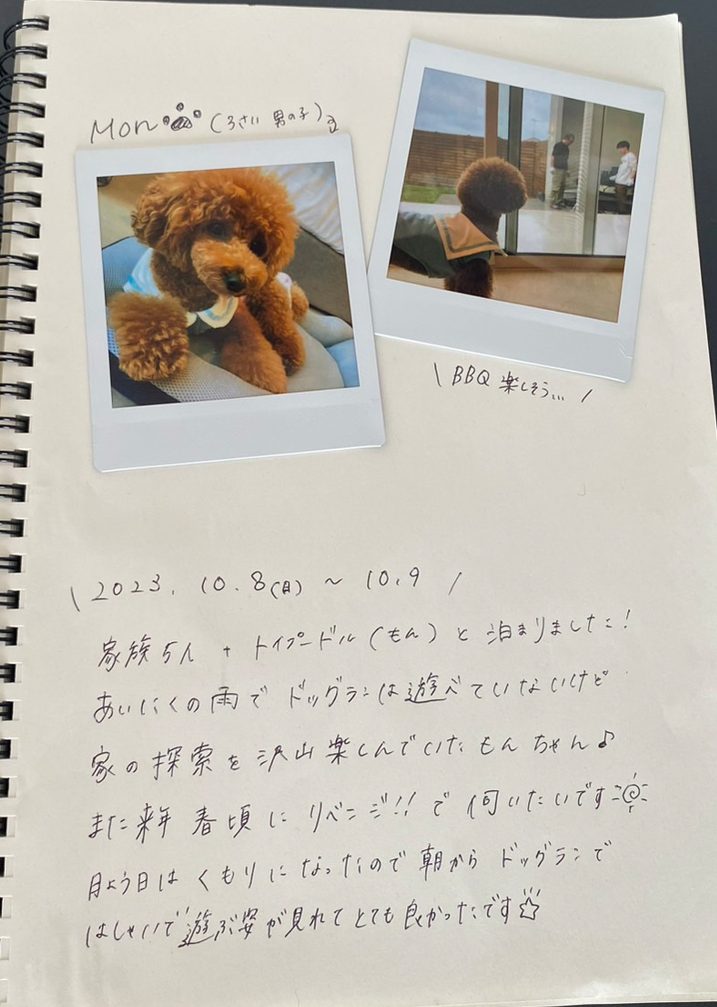 Mon (3さい 男の子)
\ BBQ 楽しそう... /
\ 2023. 10.8(日) ~ 10.9 /
家族5人 + トイプードル(もん) と 泊まりました!
あいにくの雨で ドッグランは遊べていないけど
家の探索を沢山楽しんでいたもんちゃん♪
また来年 春頃に リベンジ!! で 伺いたいです
月よう日は くもりになったので 朝から ドッグランで
はしゃいで遊ぶ姿が見れてとても良かったです☆